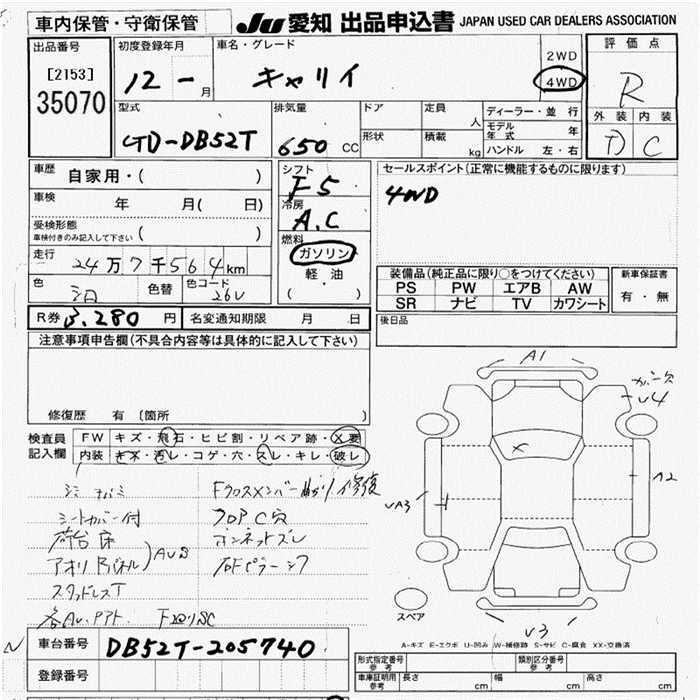 車内保管・守衛保管
JU 愛知 出品申込書 JAPAN USED CAR DEALERS ASSOCIATION
出品番号 初度登録年月 車名・グレード 評価点
[2153] 2WD
35070 12 - 月 キャリイ 4WD R
外装 内装
D C
型式 排気量 ドア 定員 人 ディーラー・並行
GD-DB52T 650 CC 形状 積載 kg モデル年式 年
ハンドル 左・右
車歴 自家用・( )
シフト F5
セールスポイント(正常に機能するものに限ります)
4WD
車検 年 月( 日)
冷房 A.C
受検形態 車検付きのみ記入して下さい ( )
燃料 ガソリン
軽油
( ・ )
走行 24万7千564km
色 シロ 色替 色コード 26U
装備品(純正品に限り○をつけてください) 新車保証書
PS PW エアB AW 有・無
SR ナビ TV カワシート
R券 3,280 円 名変通知期限 月 日
後日品
注意事項申告欄(不具合内容等は具体的に記入して下さい)
修復歴 有 (箇所
検査員記入欄 FW キズ・飛石・ヒビ割・リペア跡・X要
内装 キズ・汚レ・コゲ・穴・スレ・キレ・破レ
シートカバー付
荷台
アオリ
スタッドレスT
修復
C穴
ボンネットズレ
A1
V4
A2
UA3
X
V3
スペア
A-キズ E-エクボ U-凹み W-補修跡 S-サビ C-腐食 XX-交換済
車台番号 DB52T-205740
登録番号
形式指定番号 参考 類別区分番号 参考
車庫証明用 参考 長さ cm 幅 cm 高さ cm